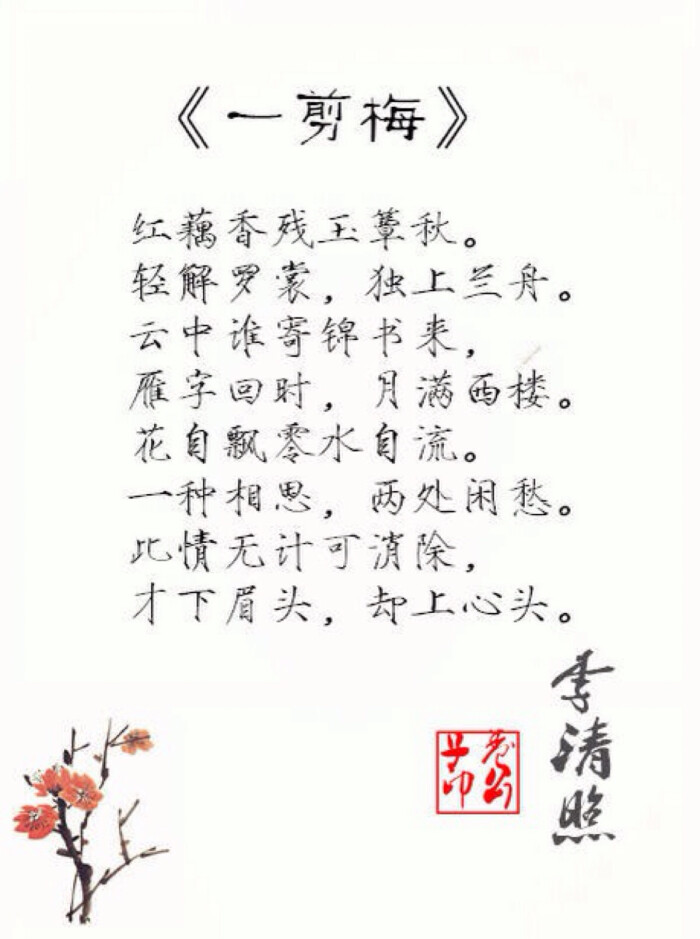 《一剪梅》
红藕香残玉簟秋。
轻解罗裳，独上兰舟。
云中谁寄锦书来，
雁字回时，月满西楼。
花自飘零水自流。
一种相思，两处闲愁。
此情无计可消除，
才下眉头，却上心头。
李清照